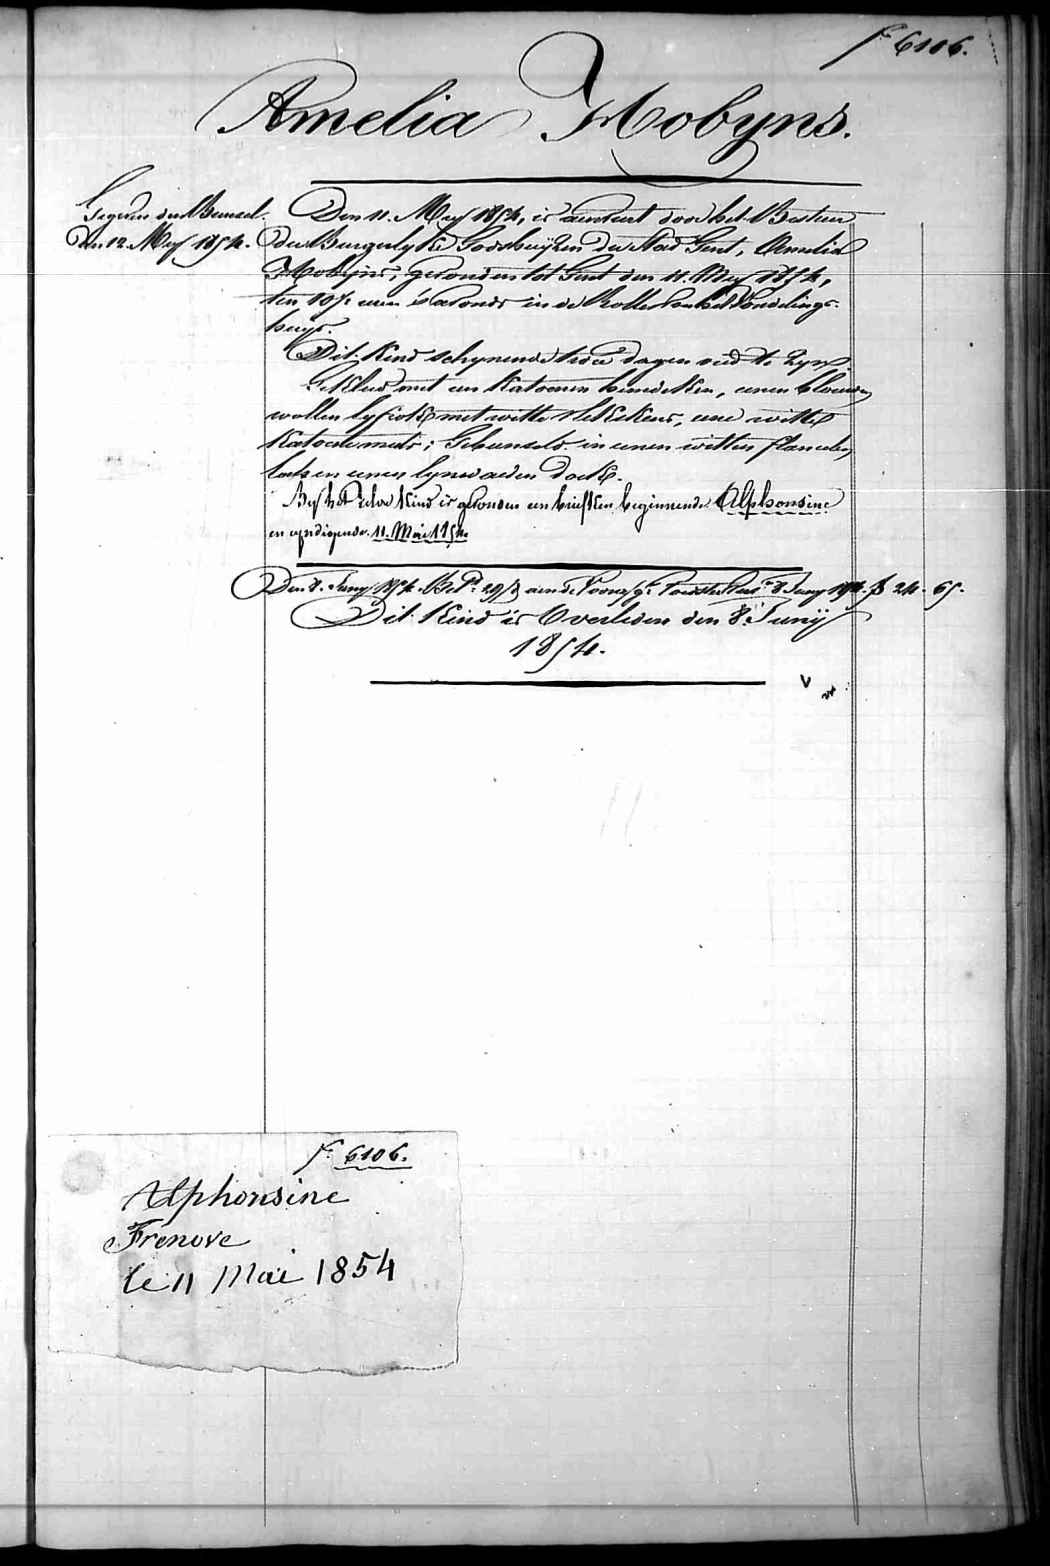 fº 6106.
Amelia Hobyns.
Gegeven den Bunsel.
den 12. Mey 1854.
Den 11. Mey 1854, is aenveert door het Bestuer
der Burgerlyke Godshuyzen der Stad Gent, Amelia
Hobyns, gevonden tot Gent den 11. Mey 1854,
ten 10½ uren 's avonds in de Rolle van het Vondelings-
huys.
Dit Kind schynende twee dagen oud te zyn.
Gekleed met een Katoenen hemdeken, eenen blauwen
wollen lyfrok met witte, eene witte
Katoene muts; Gebunseld in eenen witten flanellen
lap en eenen lynwaden doek.
By het zelve Kind is gevonden een briefken beginnende Alphonsine
en eyndigende 11. Mai 1854
Den 8. Juny 1854. 8 Juny 1854. 24. 65.
Dit Kind is Overleden den 8. Junij
1854.
fº 6106.
Alphonsine
Frenove
le 11 Mai 1854